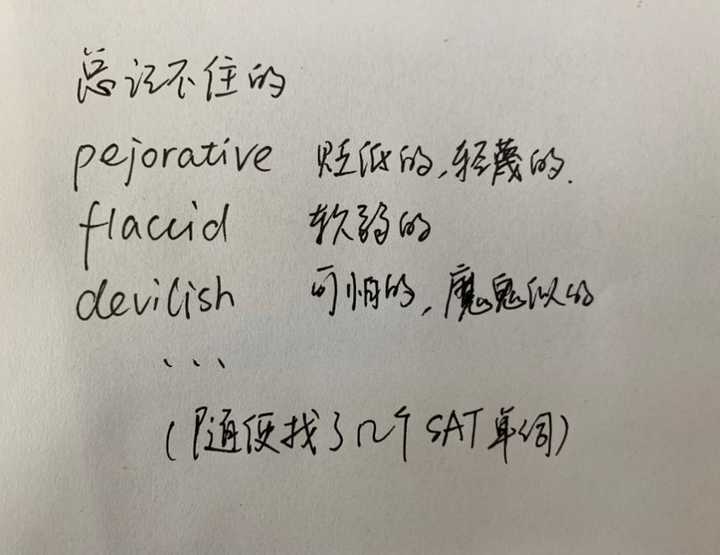 总记不住的
pejorative 贬低的,轻蔑的.
flaccid 软弱的
devilish 可怕的,魔鬼似的
...
(随便找了几个SAT单词)